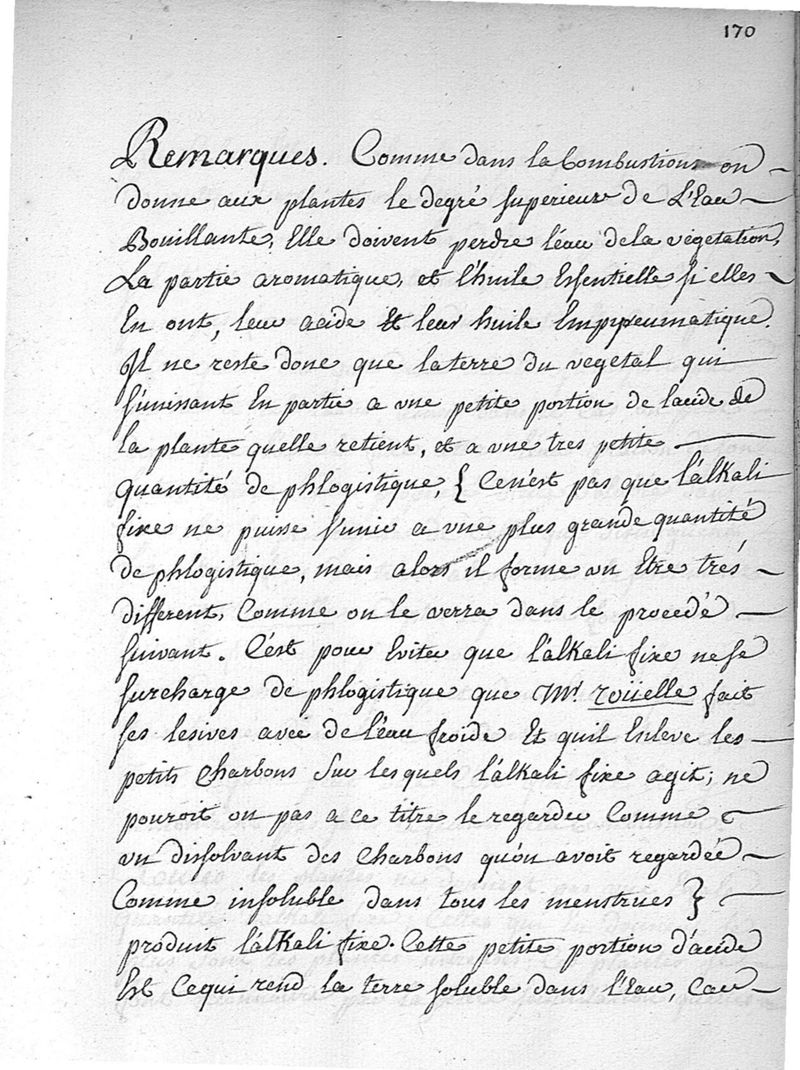 170
Remarques. Comme dans la Combustion on
donne aux plantes le degré superieur de L'Eau
Bouillante, Elle doivent perdre l'eau de la végetation,
La partie aromatique, et l'huile Essentielle si elles
En ont, leur acide Et leur huile Empyreumatique.
Il ne reste donc que la terre du vegetal qui
s'unissant En partie a une petite portion de lacide de
la plante quelle retient, et a une tres petite
quantité de phlogistique, { Cen'est pas que l'alkali
fixe ne puisse s'unir a une plus grande quantité
de phlogistique, mais alors il forme un Etre trés
different, Comme on le verra dans le procedé
suivant. C'est pour Eviter que l'alkali fixe ne se
surcharge de phlogistique que Mr. roüelle fait
ses lesives avec de l'eau froide Et quil Enleve les
petits Charbons Sur lesquels l'alkali fixe agit; ne
pouroit on pas a ce titre le regarder Comme
un dissolvant des Charbons qu'on avoit regardée
Comme insoluble dans tous les menstrues }
produit l'alkali fixe. Cette petite portion d'acide
Est Cequi rend la terre soluble dans l'Eau, Car